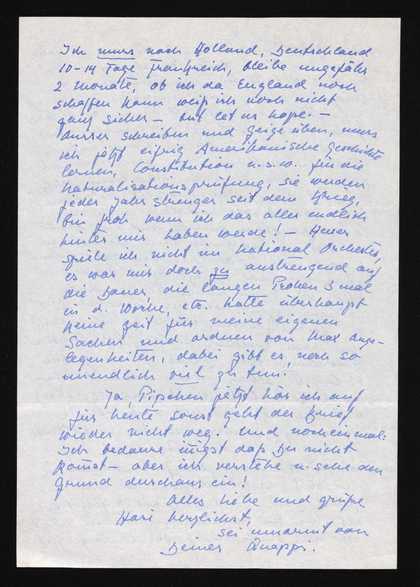 Ich muss nach Holland, Deutschland
10-14 Tage Frankreich, bleibe ungefähr
2 Monate, ob ich da England noch
schaffen kann weiß ich noch nicht
ganz sicher – but let us hope. –
Ausser schreiben und geige üben, muss
ich jetzt eifrig Amerikanische geschichte
lernen, Constitution u.s.w. für die
Naturalisationsprüfung, sie werden
jedes Jahr strenger seit dem Krieg,
bin froh wenn ich das alles endlich
hinter mir haben werde! – Heuer
spiele ich nicht im National Orchester,
es war mir doch zu anstrengend auf
die Dauer, die langen Proben 3 mal
in d. Woche, etc. hatte überhaupt
keine Zeit für meine eigenen
Sachen und ordnen von Max Ange-
legenheiten, dabei gibt es noch so
unendlich viel zu tun!
Ja Pipchen jetzt hör ich auf
für heute sonst geht der Brief
wieder nicht weg. Und noch einmal:
Ich bedaure dass Du nicht
kommst – aber ich verstehe u. sehe den
Grund durchaus ein!
Alles liebe und grüße
Hasi herzlichst,
sei umarmt von
Deiner Quappi.